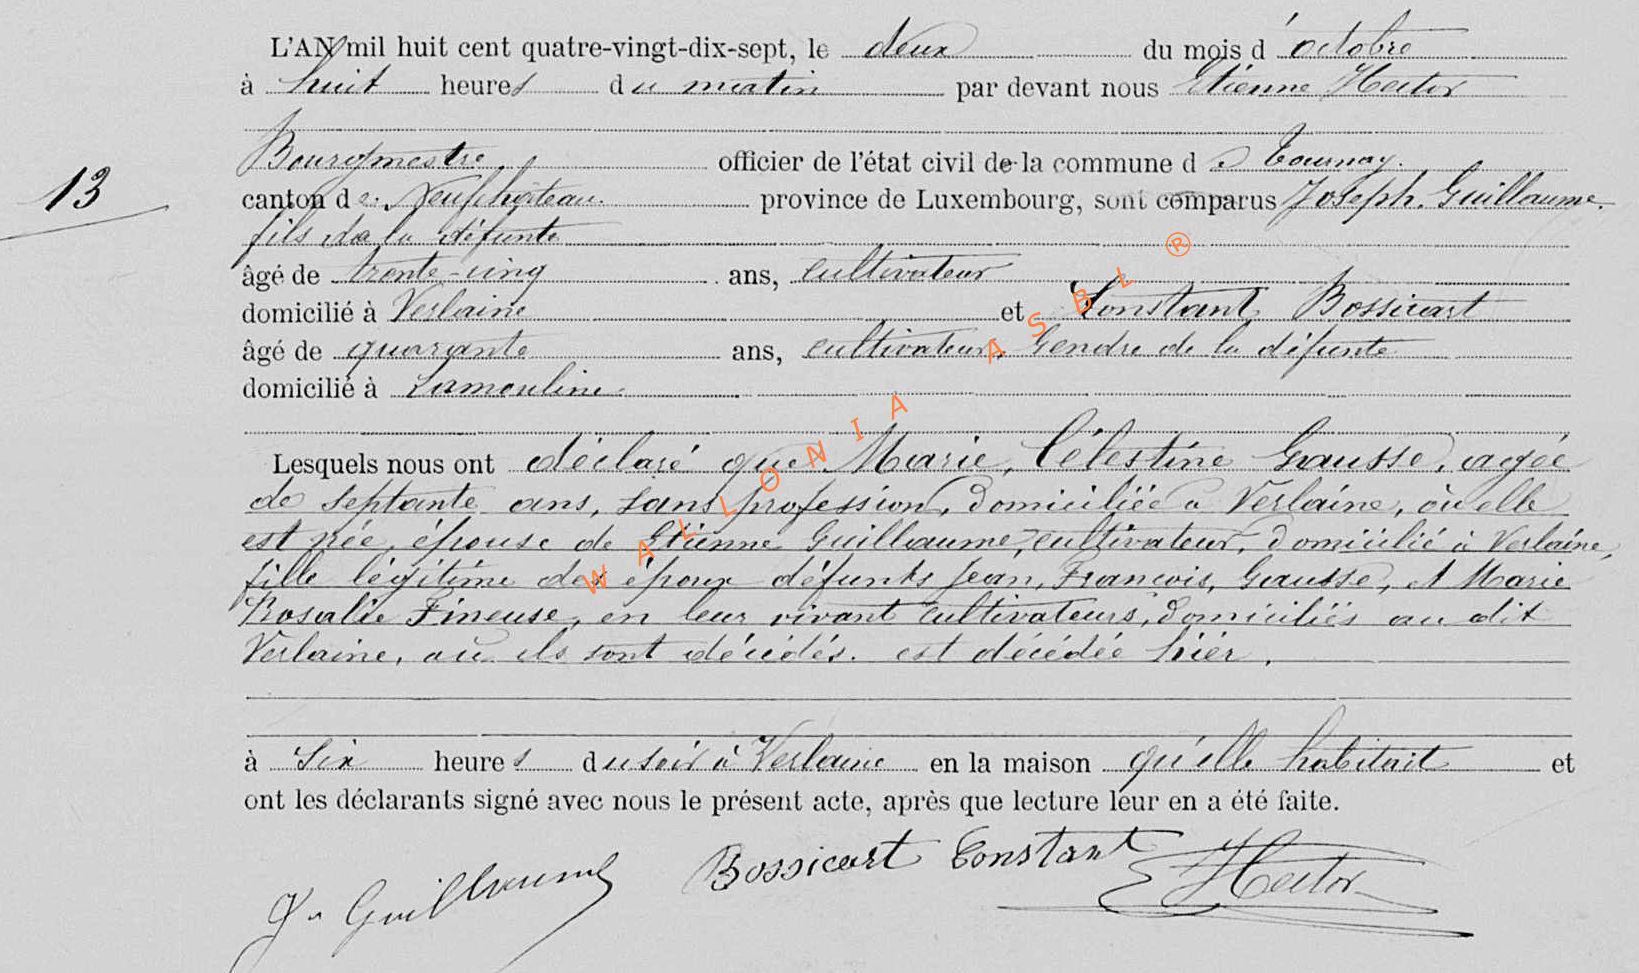 L'AN mil huit cent quatre-vingt-dix-sept, le deux du mois d'octobre
à huit heures du matin par devant nous Etienne Hector
Bourgmestre officier de l'état civil de la commune de Tournay.
13
canton de Neufchâteau. province de Luxembourg, sont comparus Joseph. Guillaume.
fils de la défunte
âgé de trente-cinq ans, cultivateur
domicilié à Verlaine et Constant Bossicart
âgé de quarante ans, cultivateur, Gendre de la défunte
domicilié à Lamouline.
Lesquels nous ont déclaré que Marie, Célestine Gausse, agée
de septante ans, sans profession, domiciliée à Verlaine, où elle
est née, épouse de Etienne Guillaume, cultivateur, domicilié à Verlaine,
fille légitime des époux défunts Jean, François, Gausse, et Marie
Rosalie Fineuse, en leur vivant cultivateurs, domiciliés au dit
Verlaine, où ils sont décédés. est décédée hier.
à Six heures du soir à Verlaine en la maison qu'elle habitait et
ont les déclarants signé avec nous le présent acte, après que lecture leur en a été faite.
J. Guillaume Bossicart Constant E Hector
WALLONIA ASBL ®